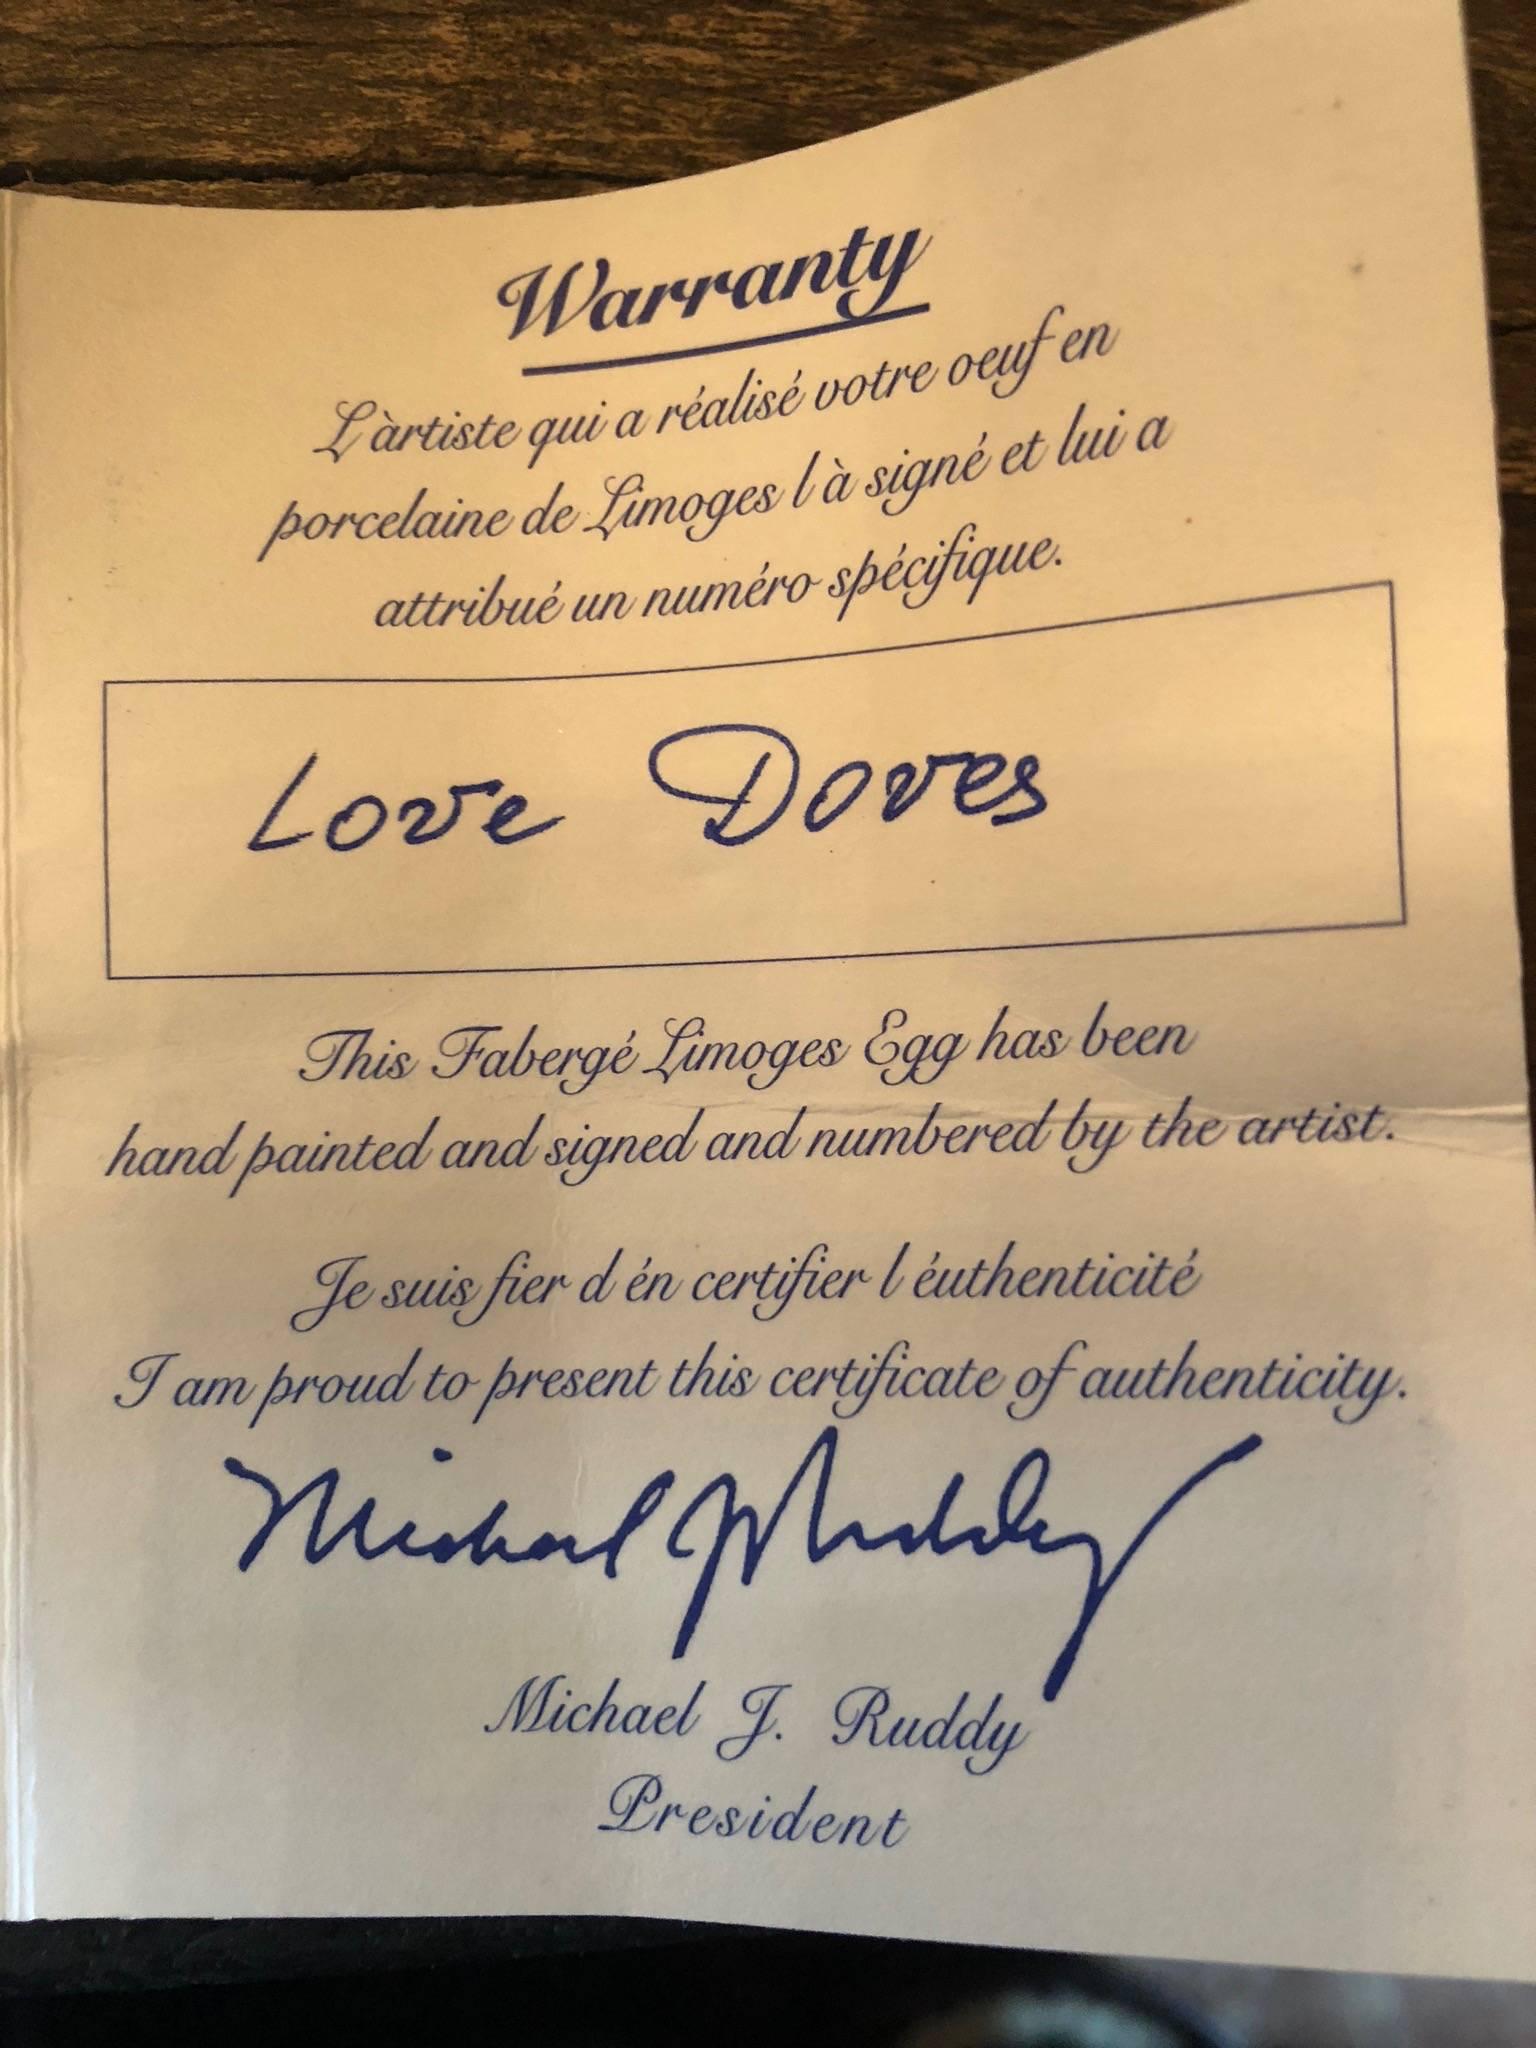 Warranty
L àrtiste qui a réalisé votre oeuf en
porcelaine de Limoges l à signé et lui a
attribué un numéro spécifique.
Love Doves
This Fabergé Limoges Egg has been
hand painted and signed and numbered by the artist.
Je suis fier d én certifier l éuthenticité
I am proud to present this certificate of authenticity.
Michael J Ruddy
Michael J. Ruddy
President